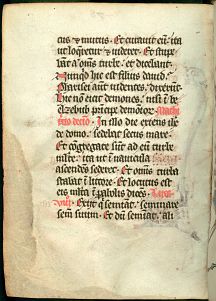 cus & mutus. Et curauit eū. ita
ut loqueretur & uideret. Et stupe
bāt oīms turbe. et dicebant.
Nunqd hic est filius dauid.
Pharisei aūt audientes. dixerūt.
Hic nō eicit demones. nisi ī be
elzebub prīcipe demonior̄.
In die illo exiens ihc
de domo. sedebat secus mare.
Et cōgregate sunt ad eū turbe
multe. ita ut ī nauicula
ascendēs sederet. Et omīs turba
stabat ī littore. Et locutus est
eis multa ī parabolis dicēs.
Exiit qͥ seminat. seminare
semen suum. Et dū seminat. ali